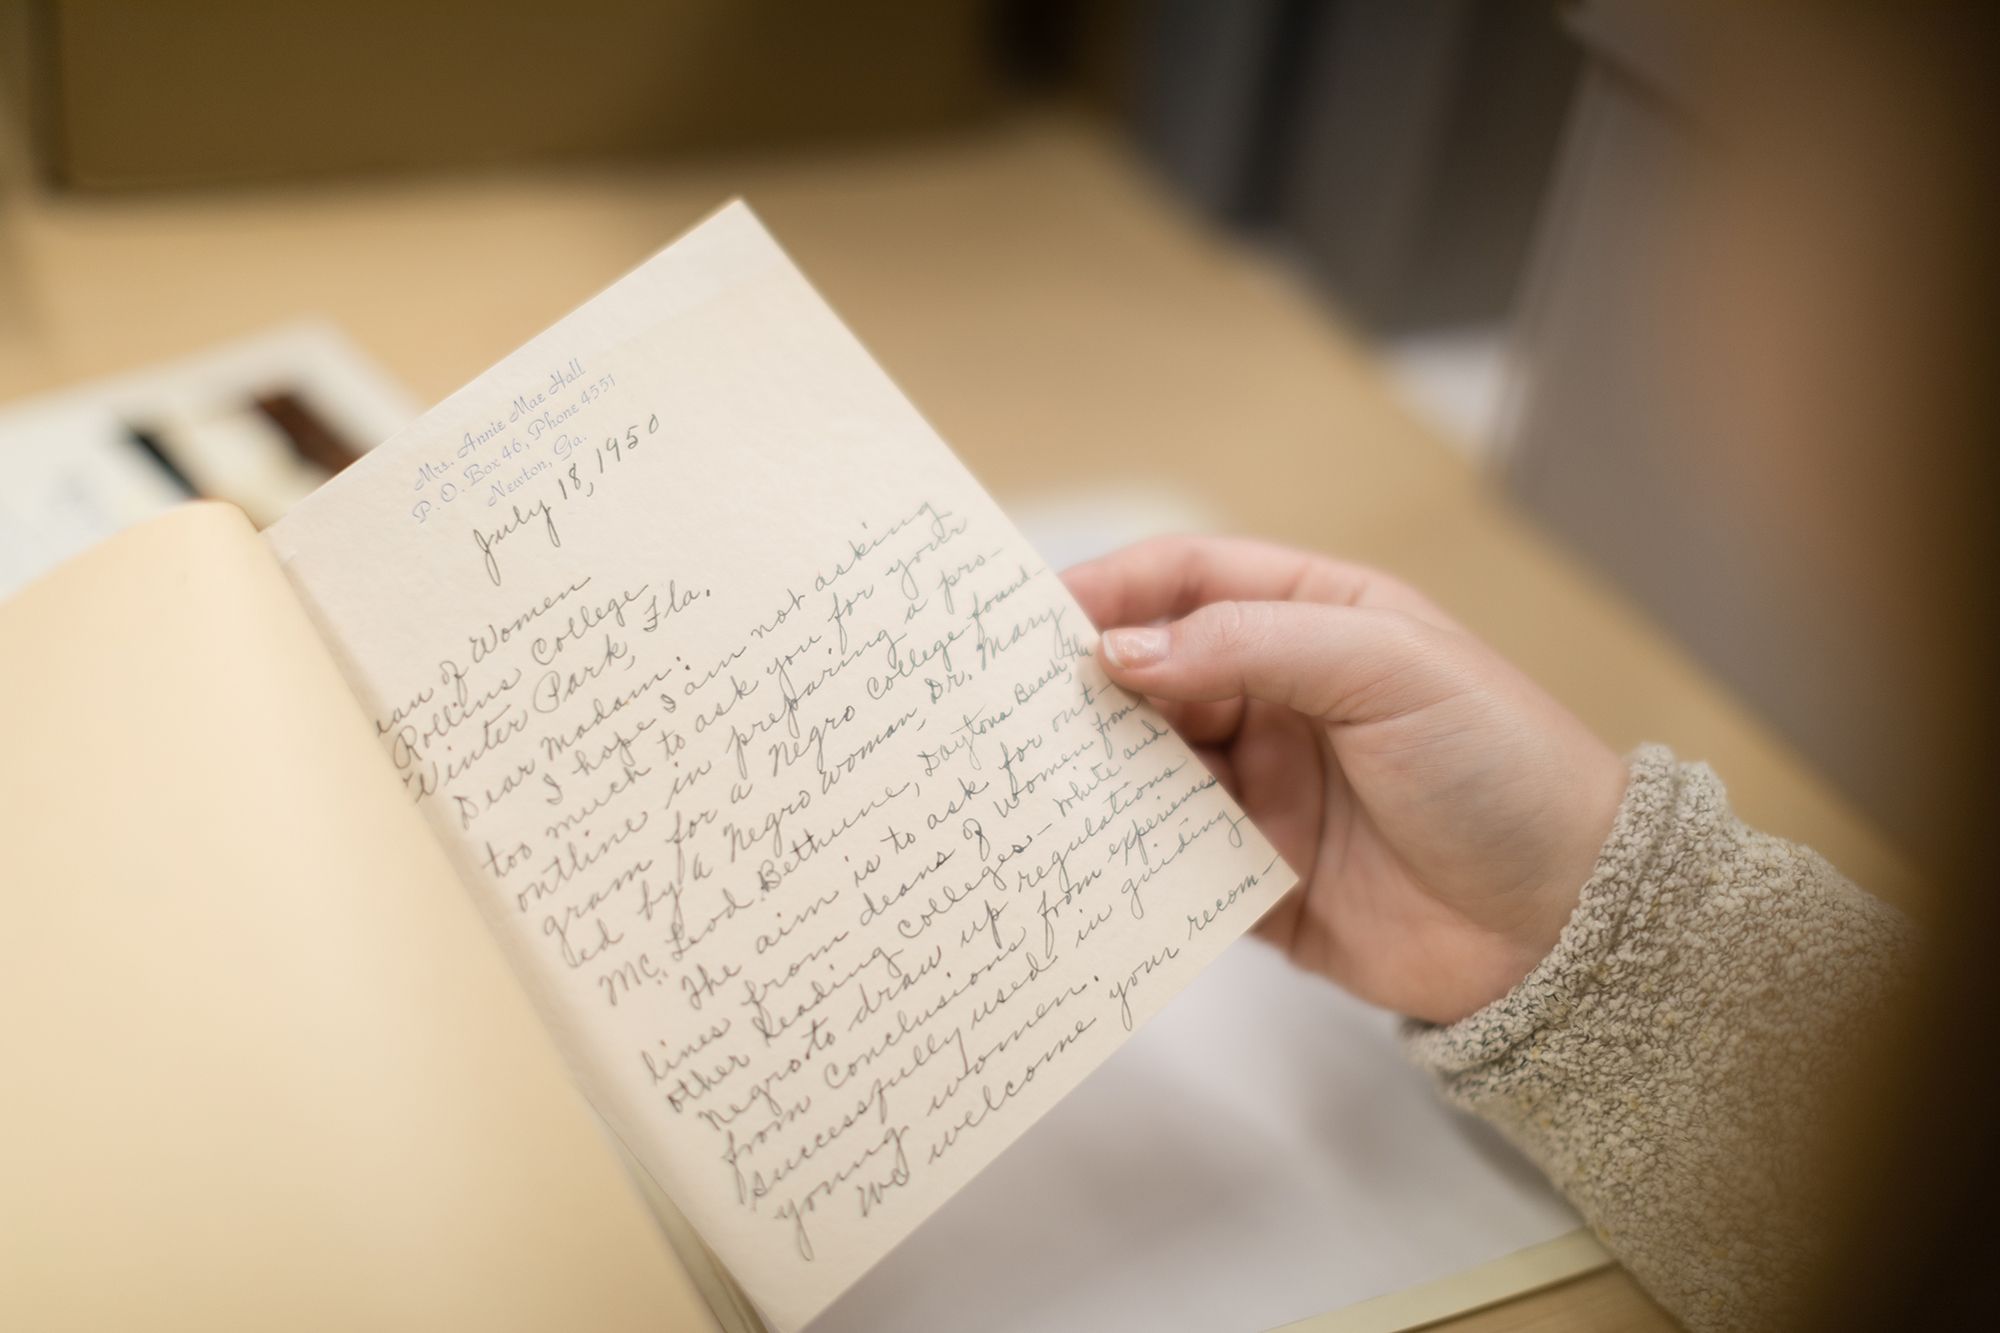 Mrs. Annie Mae Hall
P. O. Box 46, Phone 4551
Newton, Ga.
July 18, 1950
ean of Women
Rollins College
Winter Park, Fla.
Dear Madam:
I hope I am not asking
too much to ask you for your
outline in preparing a pro-
gram for a Negro College found-
ed by a Negro woman, Dr. Mary
McLeod Bethune, Daytona Beach, Fla
The aim is to ask for out-
lines from deans of women from
other leading colleges - White and
Negro to draw up regulations
from conclusions from experiences
successfully used in guiding
young women.
We welcome your recom-